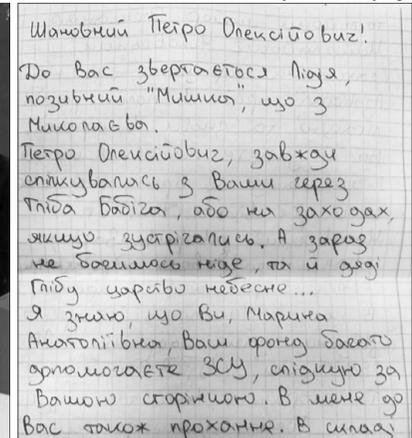 Шановний Петро Олексійович!
До Вас звертається Лідія,
позивний "Мишка", що з
Миколаєва.
Петро Олексійович, завжди
спілкувались з Вами через
Гліба Бабіча, або на заходах,
якщо зустрічались. А зараз
не бачимось ніде, та й дяді
Глібу царство небесне...
Я знаю, що Ви, Марина
Анатоліївна, Ваш фонд багато
допомогаєте ЗСУ, слідкую за
Вашою сторінкою. В мене до
Вас також прохання. В складі